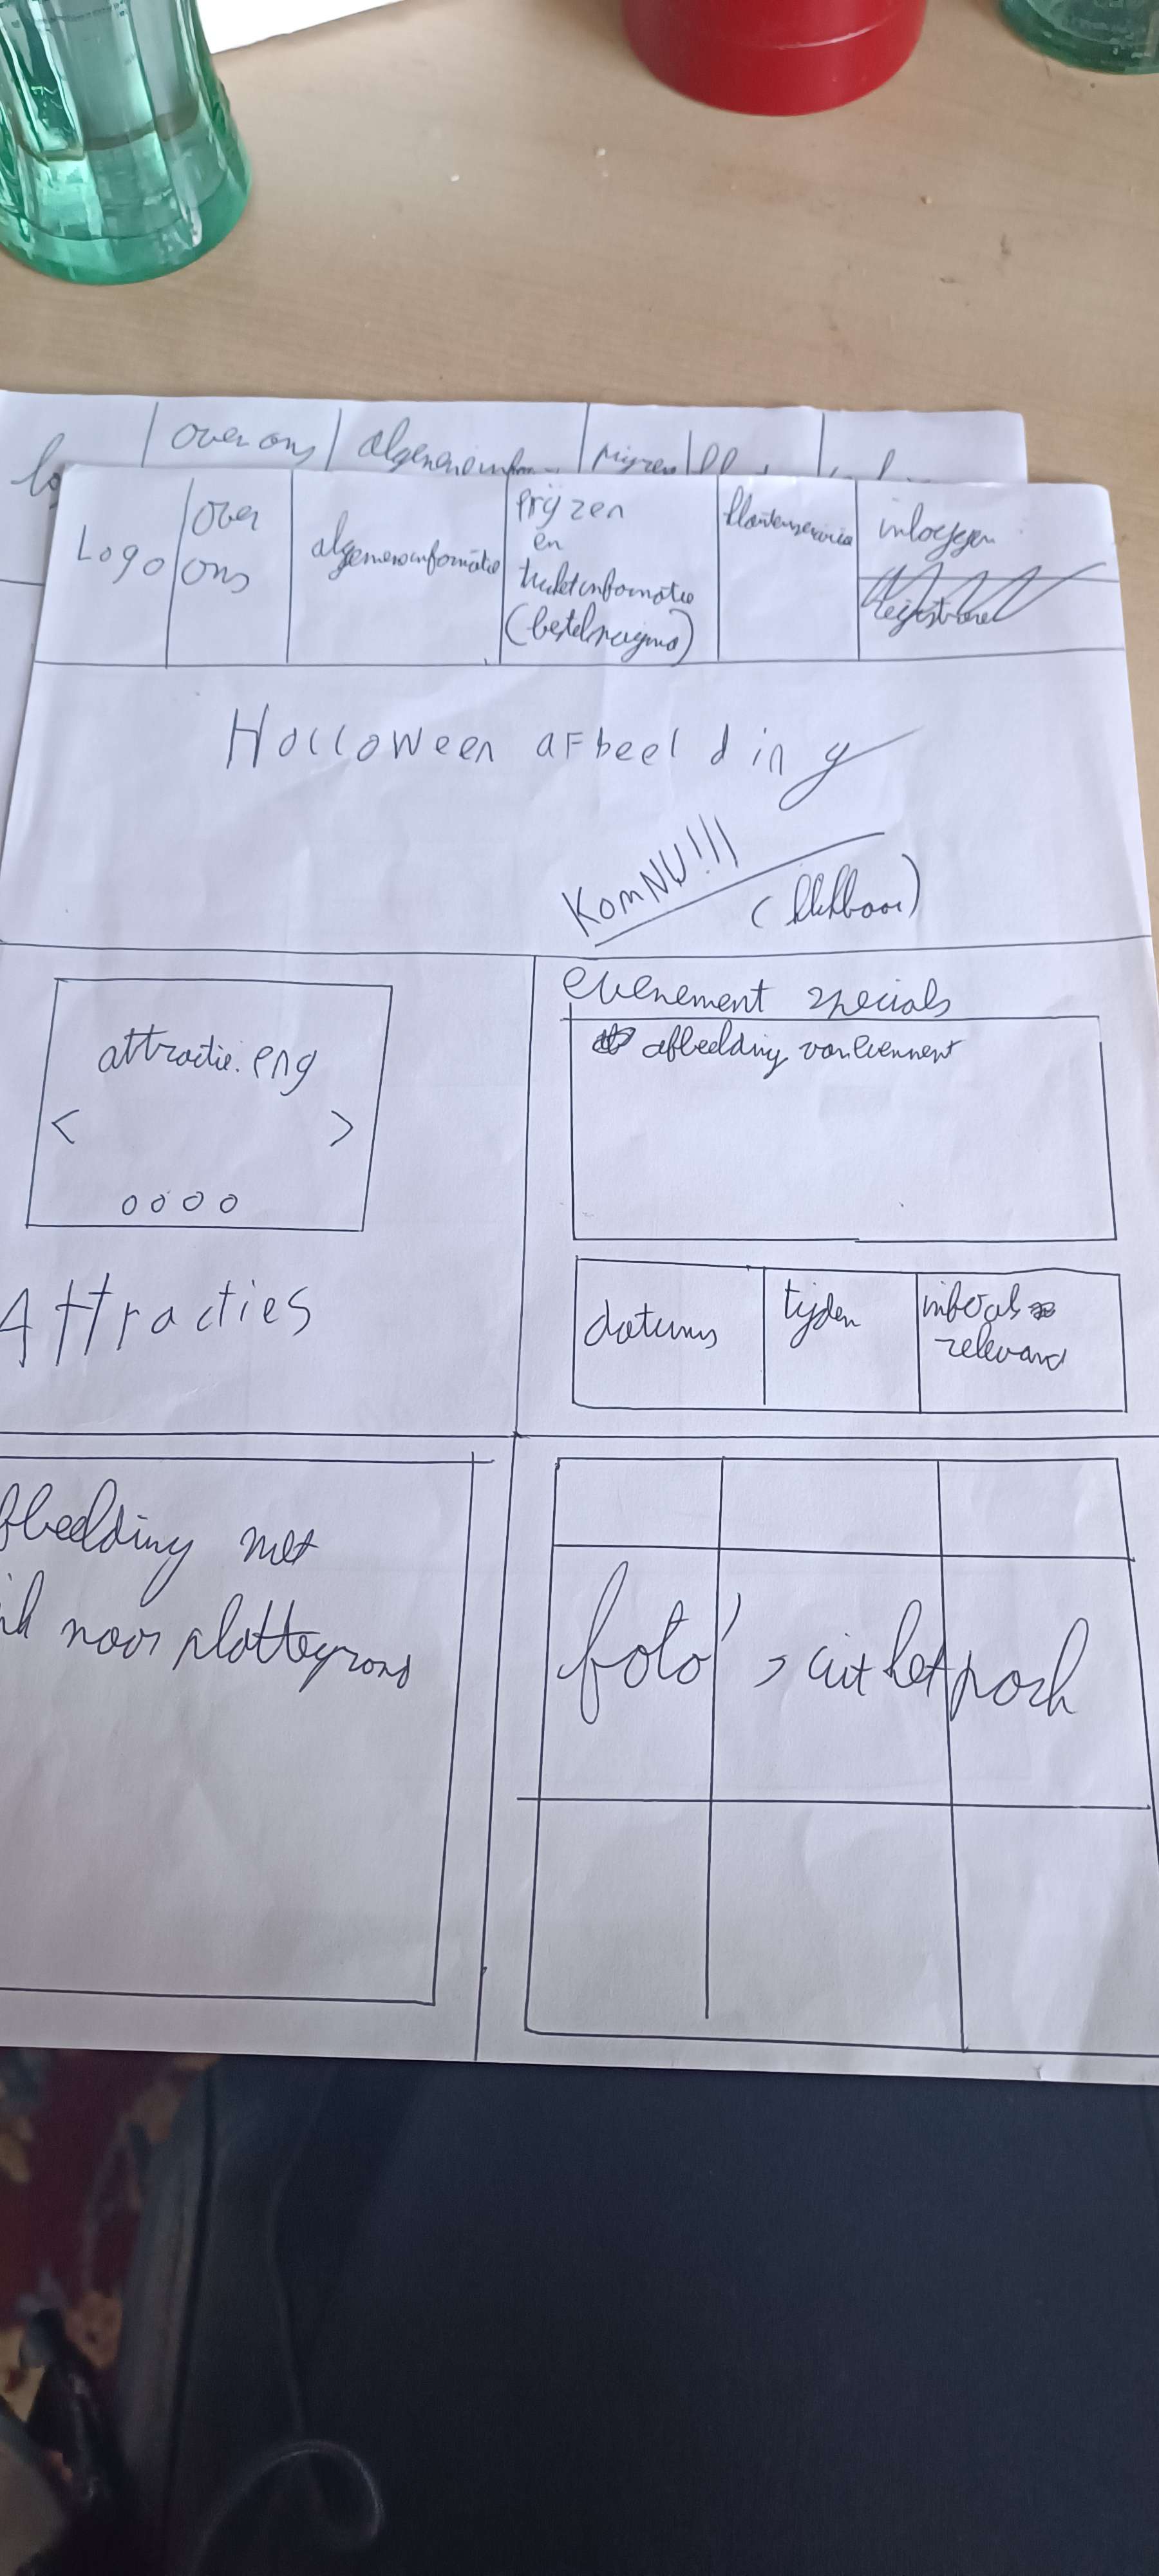 over ons
algemene
Logo
over
ons
algemeneinformatie
prijzen
en
ticketinformatie
(bestelpagina)
klantenservice
inloggen
registreren
Halloween afbeelding
KOM NU!!!
(klikbaar)
attractie.png
<
>
Attracties
evenement specials
afbeelding van evenement
datums
tijden
info als
relevant
fbeelding met
nk naar plattegrond
foto's uit het park